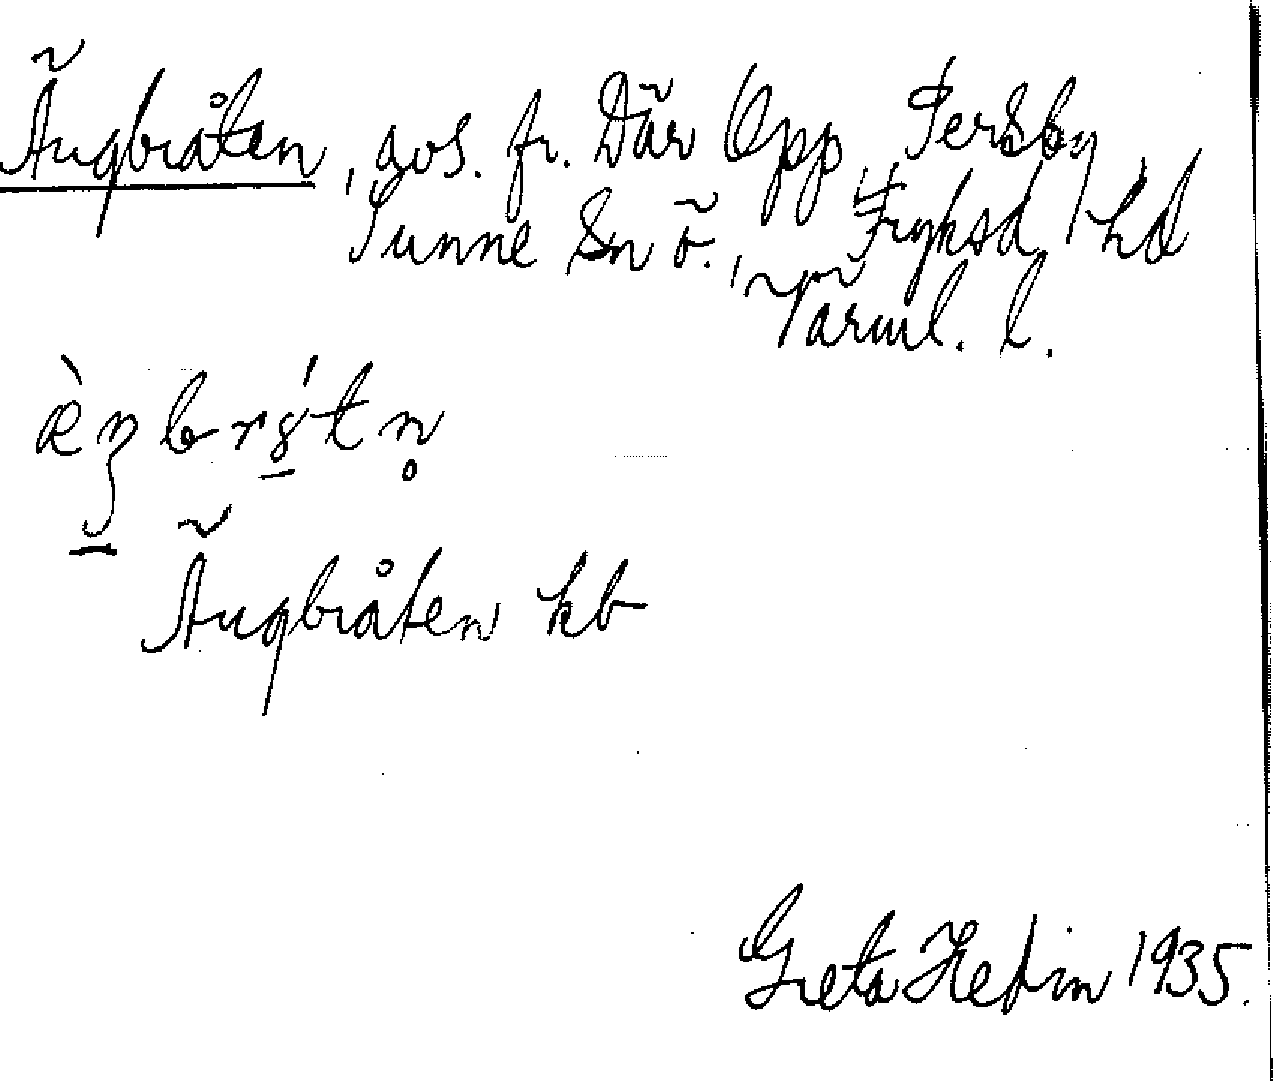 Ängbråten, avs. fr. Där Opp, Persby,
Sunne Sn ö., Fryksd. hd
Värml. l.
Ängbråten kb
Greta Hedin 1935.